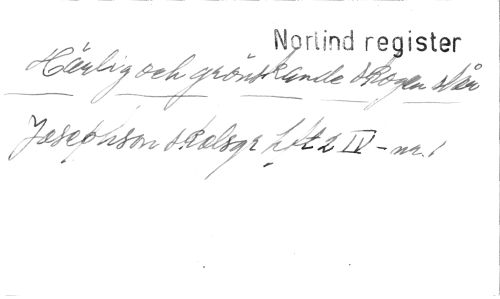 Norlind register
Härlig och grönskande skogen står
Josephson skolsgr hft 2 IV - nr. 1